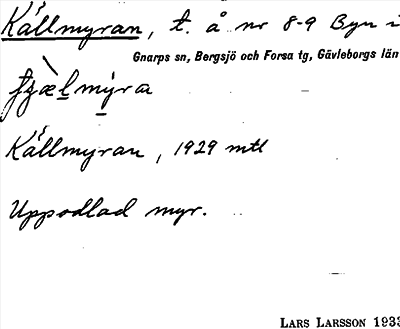 Källmyran, t. å nr 8-9 Byn i
Gnarps sn, Bergsjö och Forsa tg, Gävleborgs län
Källmyran, 1929 mtl
Uppodlad myr.
LARS LARSSON 1933